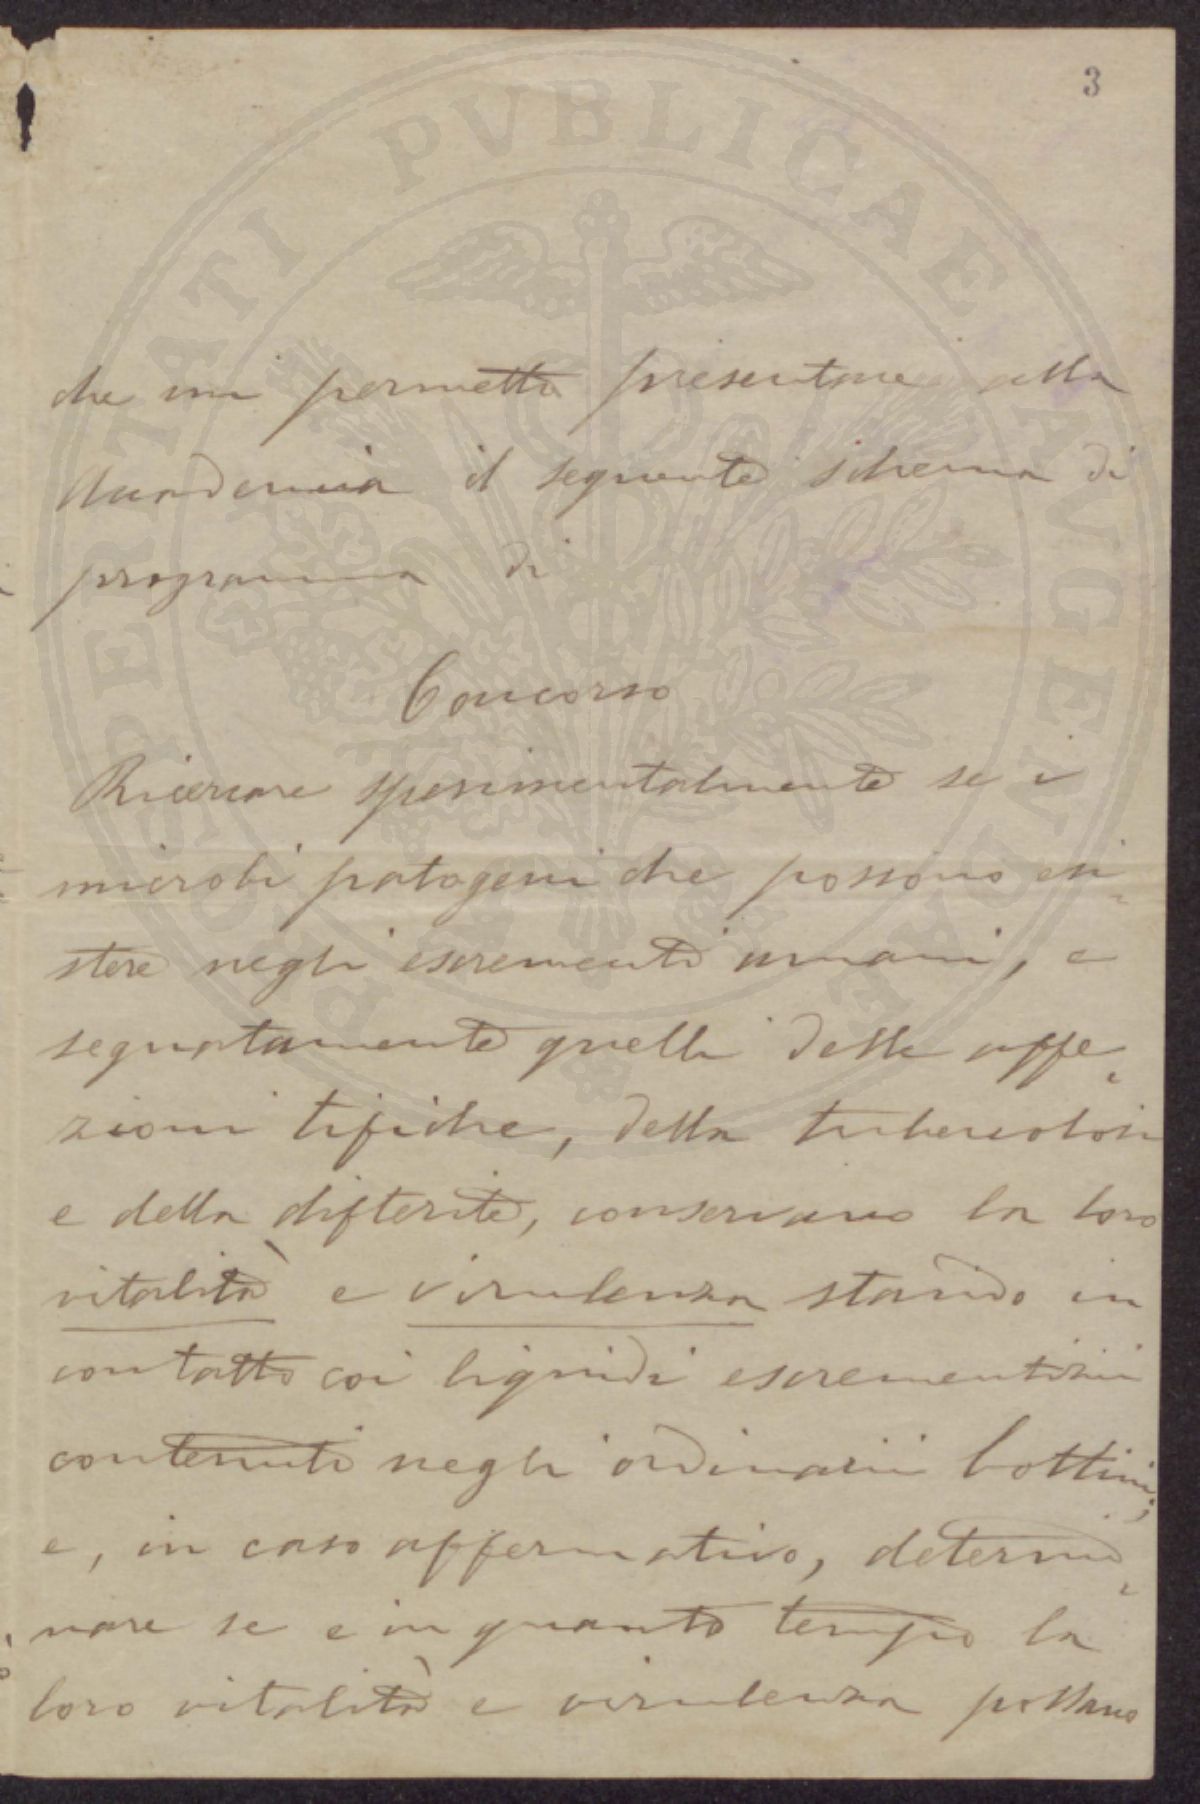 3
che mi permetto presentare alla
Accademia il seguente schema di
programma di
Concorso
Ricercare sperimentalmente se i
microbi patogeni che possono esi-
stere negli escrementi umani, e
segnatamente quelli delle affe-
zioni tifiche, della tubercolosi
e della difterite, conservano la loro
vitalità e virulenza stando in
contatto coi liquidi escrementizii
contenuti negli ordinarii bottini;
e, in caso affermativo, determi-
nare se e in quanto tempo la
loro vitalità e virulenza possano
PROSPERITATI PVBLICAE AVGENDAE